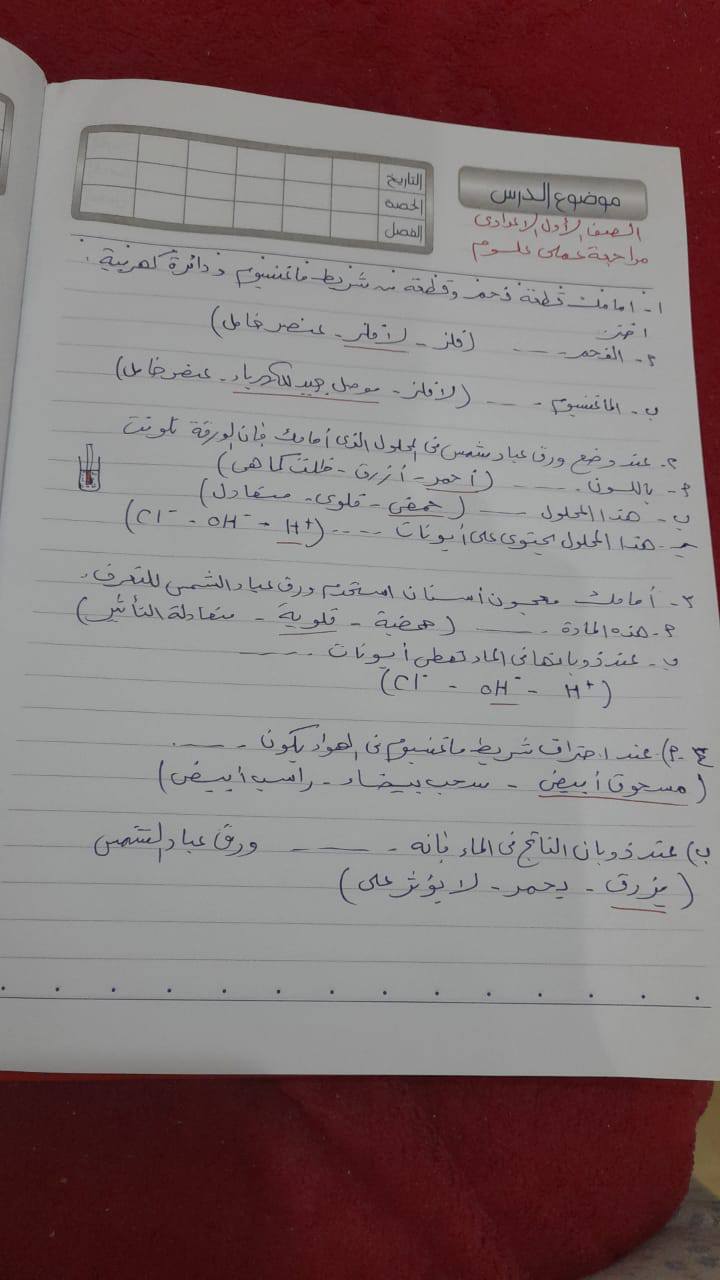 موضوع الدرس
التاريخ
الحصة
الفصل
الصف الأول الاعدادى
مراجعة عملى علوم
١- أمامك قطعة فحم وقطعة من شريط ماغنسيوم ودائرة كهربية.
اختر
٩- الفحم ---- (فلز - لافلز - عنصر خامل)
ب- الماغنسيوم ---- (لافلز - موصل جيد للكهرباء - عنصر خامل)
٢- عند وضع ورق عباد شمس فى المحلول الذى أمامك فإن الورقة تلونت
٩- باللون ---- (أحمر - أزرق - ظلت كما هى)
ب- هذا المحلول ---- (حمضى - قلوى - متعادل)
ج- هذا المحلول يحتوى على أيونات ---- (H+ - OH- - Cl-)
٣- أمامك معجون أسنان استخدم ورق عباد الشمس للتعرف.
٩- هذه المادة ---- (حمضية - قلوية - متعادلة التأثير)
ب- عند ذوبانها فى الماء تعطى أيونات ----
(H+ - OH- - Cl-)
٤- ٩) عند احتراق شريط ماغنسيوم فى الهواء يكون ----
(مسحوق أبيض - سحب بيضاء - راسب أبيض)
ب) عند ذوبان الناتج فى الماء فإنه ---- ورق عباد الشمس
(يزرق - يحمر - لا يؤثر على)